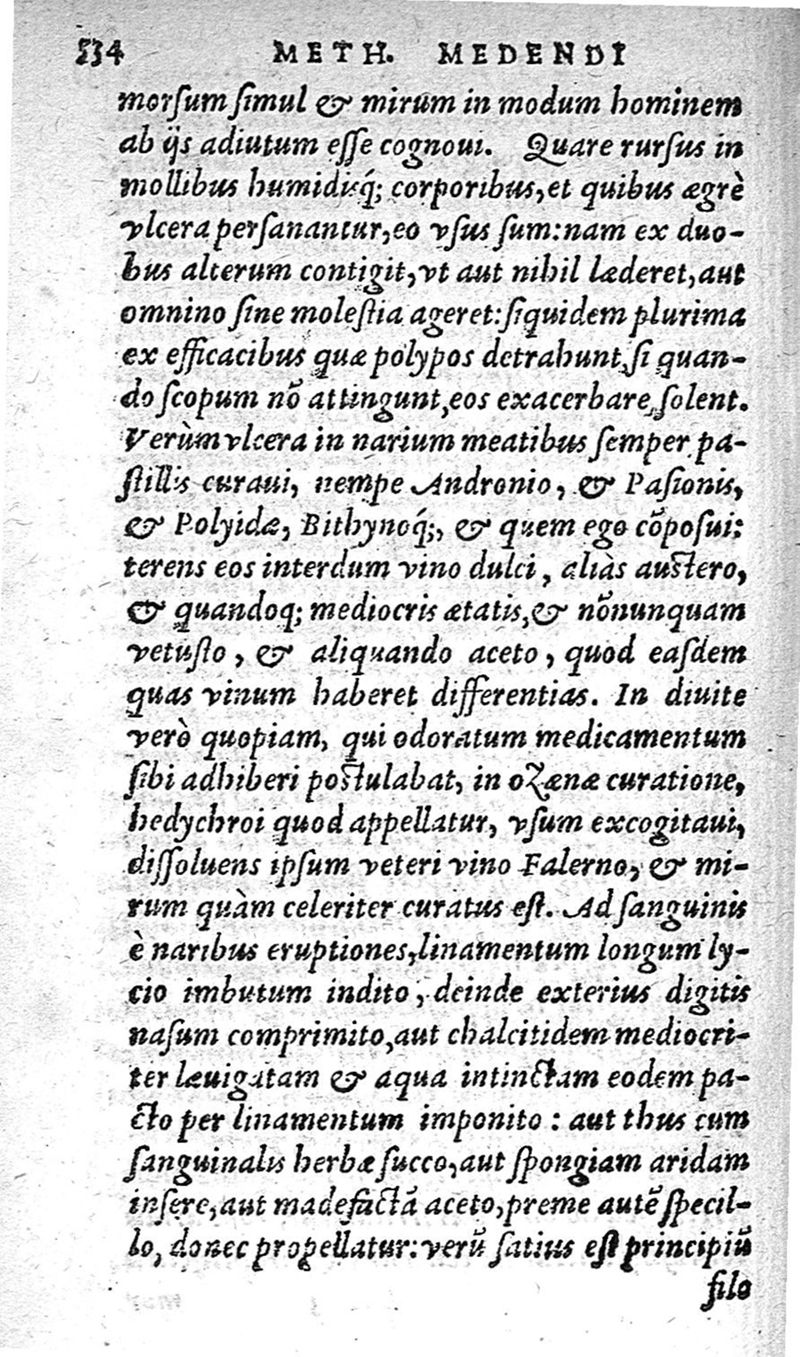 534 METH. MEDENDI
morſum ſimul & mirum in modum hominem
ab ijs adiutum eſſe cognoui. Quare rurſus in
mollibus humidiſq́; corporibus, et quibus ægrè
vlcera perſanantur, eo vſus ſum: nam ex duo-
bus alterum contigit, vt aut nihil læderet, aut
omnino ſine moleſtia ageret: ſiquidem plurima
ex efficacibus quæ polypos detrahunt, ſi quan-
do ſcopum nō attingunt, eos exacerbare ſolent.
Verùm vlcera in narium meatibus ſemper pa-
ſtillis curaui, nempe Andronio, & Paſionis,
& Polyidæ, Bithynoq́;, & quem ego cōpoſui:
terens eos interdum vino dulci, aliàs auſtero,
& quandoq; mediocris ætatis, & nōnunquam
vetuſto, & aliquando aceto, quod eaſdem
quas vinum haberet differentias. In diuite
verò quopiam, qui odoratum medicamentum
ſibi adhiberi poſtulabat, in ozænæ curatione,
hedychroi quod appellatur, vſum excogitaui,
diſſoluens ipſum veteri vino Falerno, & mi-
rum quàm celeriter curatus eſt. Ad ſanguinis
è naribus eruptiones, linamentum longum ly-
cio imbutum indito, deinde exterius digitis
naſum comprimito, aut chalcitidem mediocri-
ter læuigatam & aqua intinctam eodem pa-
cto per linamentum imponito: aut thus cum
ſanguinalis herbæ ſucco, aut ſpongiam aridam
inſere, aut madefactā aceto, preme autē ſpecil-
lo, donec propellatur: verū ſatius eſt principiū
filo